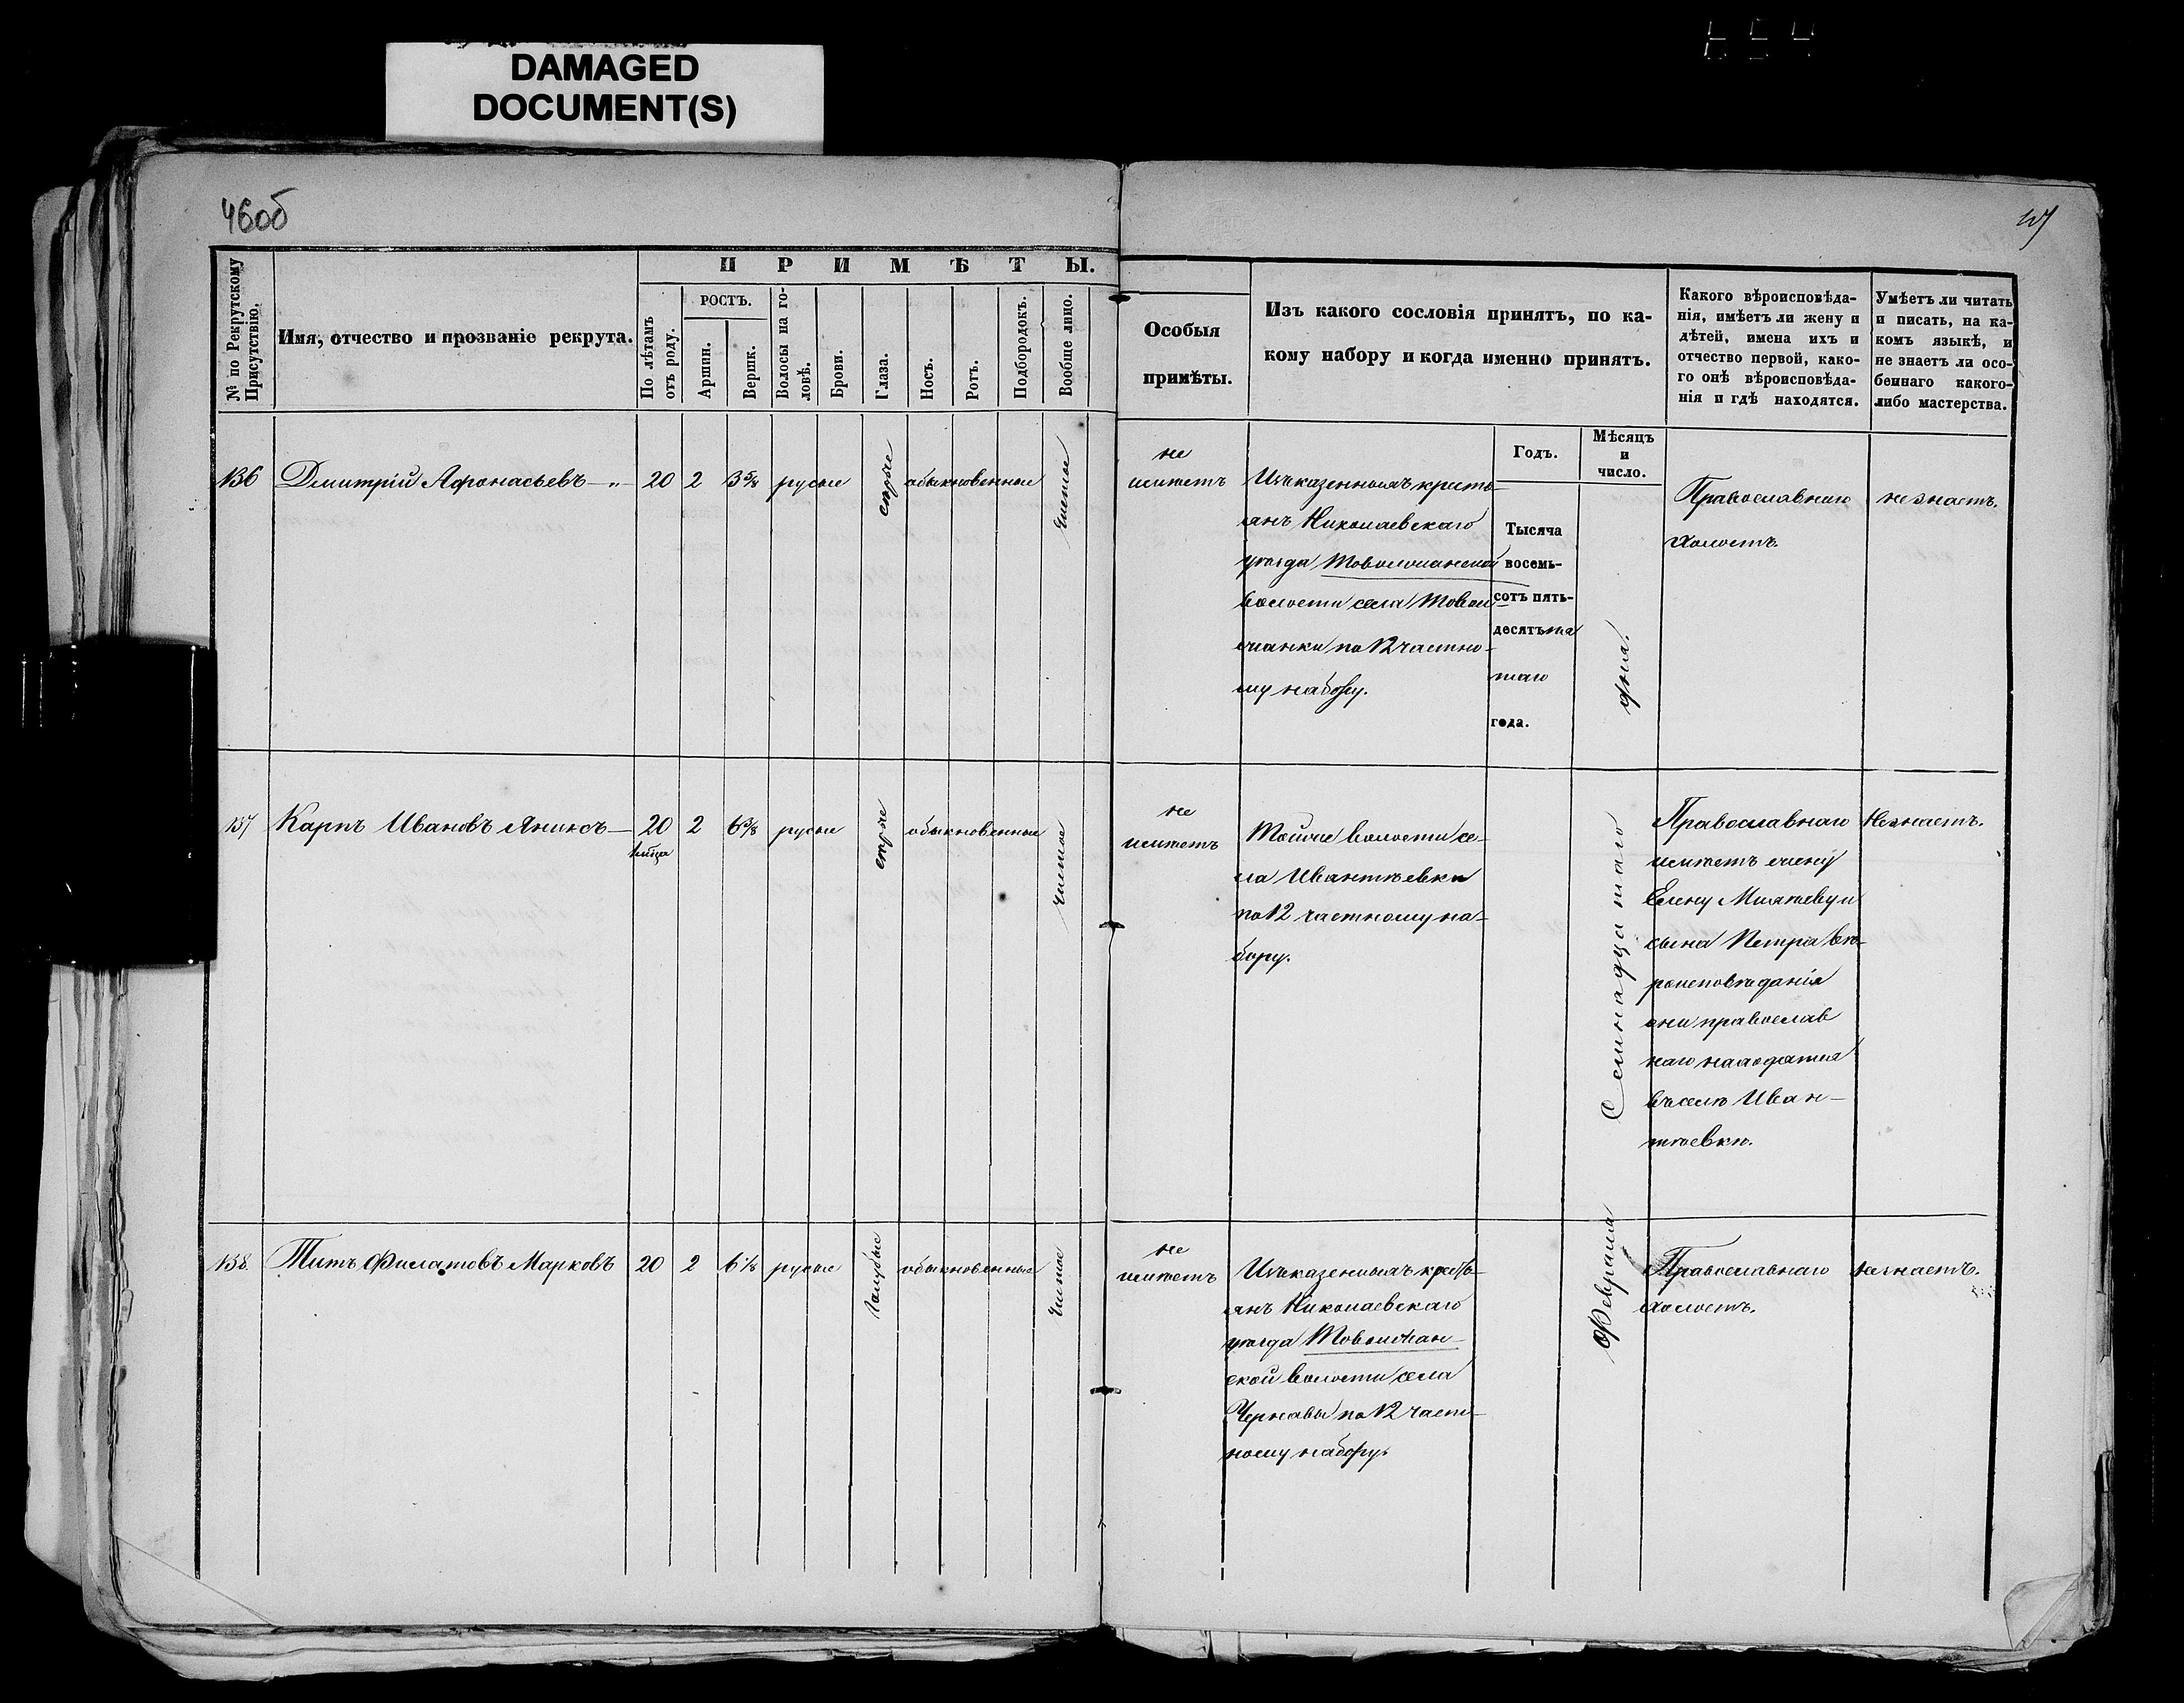 DAMAGED
DOCUMENT(S)
46об
П Р И М Ѣ Т Ы.
№ по Рекрутскому
Присутствію.
Имя, отчество и прозваніе рекрута.
По лѣтамъ
отъ роду.
РОСТЪ.
Аршин.
Вершк.
Волосы на го-
ловѣ.
Брови.
Глаза.
Носъ.
Ротъ.
Подбородокъ.
Вообще лицо.
Особыя
примѣты.
Изъ какого сословія принятъ, по ка-
кому набору и когда именно принятъ.
Какого вѣроисповѣда-
нія, имѣетъ ли жену и
дѣтей, имена ихъ и
отчество первой, како-
го онѣ вѣроисповѣда-
нія и гдѣ находятся.
Умѣетъ ли читать
и писать, на ка-
комъ языкѣ, и
не знаетъ ли осо-
беннаго какого-
либо мастерства.
Годъ.
Мѣсяцъ
и
число.
136
Дмитрій Афонасьевъ — „
20
2
3 5/8
русые
серые
обыкновенные
чистое
не
имѣетъ
Изъ казенныхъ кресть-
янъ Николаевскаго
уѣзда Товолжанской
волости села Товол
жанки по 12 частно-
му набору.
Тысяча
восемь-
сотъ пять-
десятъ пя
таго
года.
дня.
Православнаго
холостъ.
не знаетъ.
137
Карпъ Ивановъ Янинъ —
20
2
6 3/8
русые
серые
обыкновенные
чистое
не
имѣетъ
Тойже волости се-
ла Ивантѣевки
по 12 частному на-
бору.
Семнадцатаго
Православнаго
имѣетъ жену
Елену Миняеву и
сына Петра вѣ-
роисповѣданія
они православ
наго находятся
въ селѣ Иван-
тѣевкѣ.
Незнаетъ.
138.
Титъ Филатовъ Марковъ
20
2
6 1/8
русые
голубые
обыкновенные
чистое
не
имѣетъ
Изъ казенныхъ кресть-
янъ Николаевскаго
уѣзда Товолжан-
ской волости села
Чернавы по 12 част-
ному набору.
Февраля
Православнаго
холостъ.
незнаетъ.